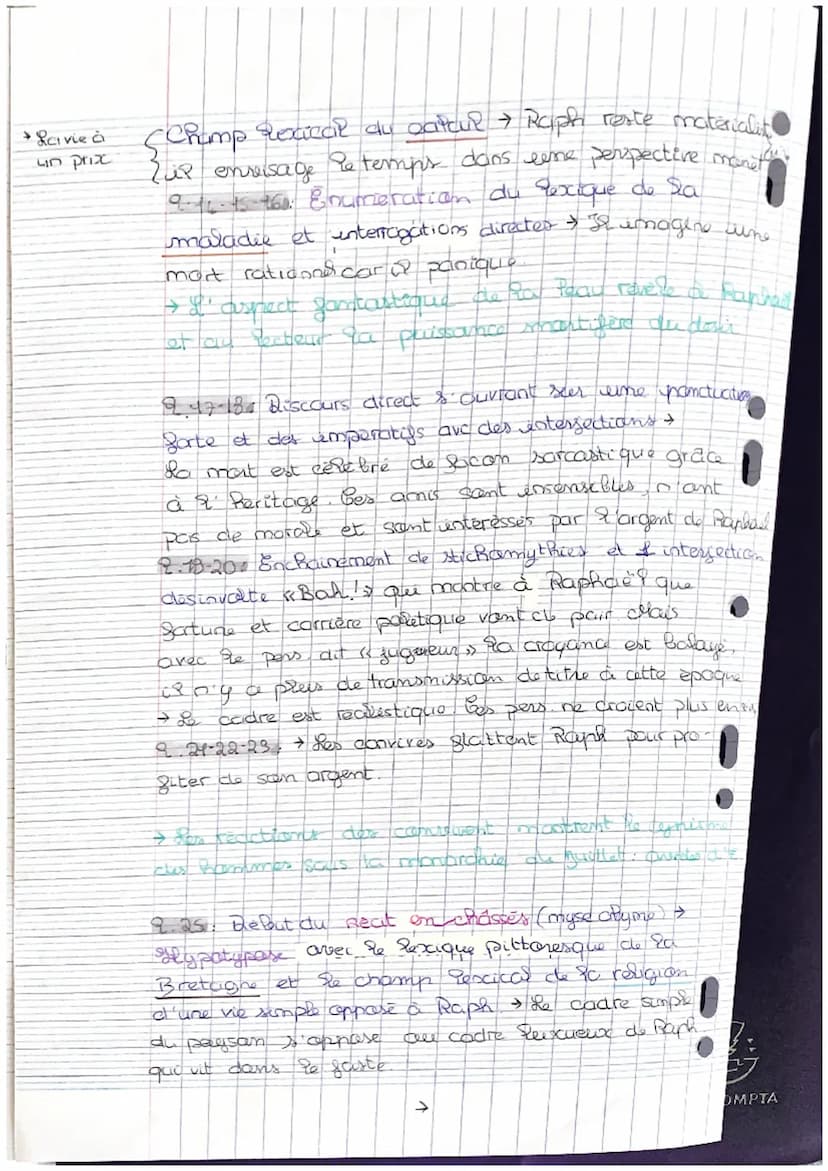 → La vie à
un prix
Champ lexical du calcul → Raph reste matérialist
il envisage le temps dans une perspective
l.14-15-16: Enumération du lexique de la
maladie et interrogations directes → Il imagine une
mort rationné car il panique.
→ L'aspect fantastique de la Peau révèle à Raphaël
et au lecteur la puissance mortifère du désir
l.17-18: Discours direct s'ouvrant sur une ponctuation
forte et des impératifs avc des intersections →
la mort est célébré de facon sarcastique grâce
à l'héritage. Ces amis sont insensibles, n'ont
pas de morale et sont intéressés par l'argent de Raphael
l.18-20: Enchainement de stichomythies et interjection
désinvolte «Bah!» qui montre à Raphaël que
fortune et carrière politique vont de pair. Mais
avec le pers. dit « jugeur » la croyance est balayé,
il n'y a plus de transmission de titre à cette époque
→ Le cadre est réalistique. Ces pers. ne croient plus en
l.21-22-23: → Les convives flattent Raph pour pro-
fiter de son argent.
→ Les réactions des montrent le cynisme
des hommes sous la monarchie de Juillet:
l.25: Début du récit en châssés (myse abyme) →
Hypotypose avec le lexique pittoresque de la
Bretagne et le champ lexical de la religion
d'une vie simple opposé à Raph. → Le cadre simple
du paysan s'oppose au cadre luxueux de Raph
qui vit dans le faste.
→
OMPTA